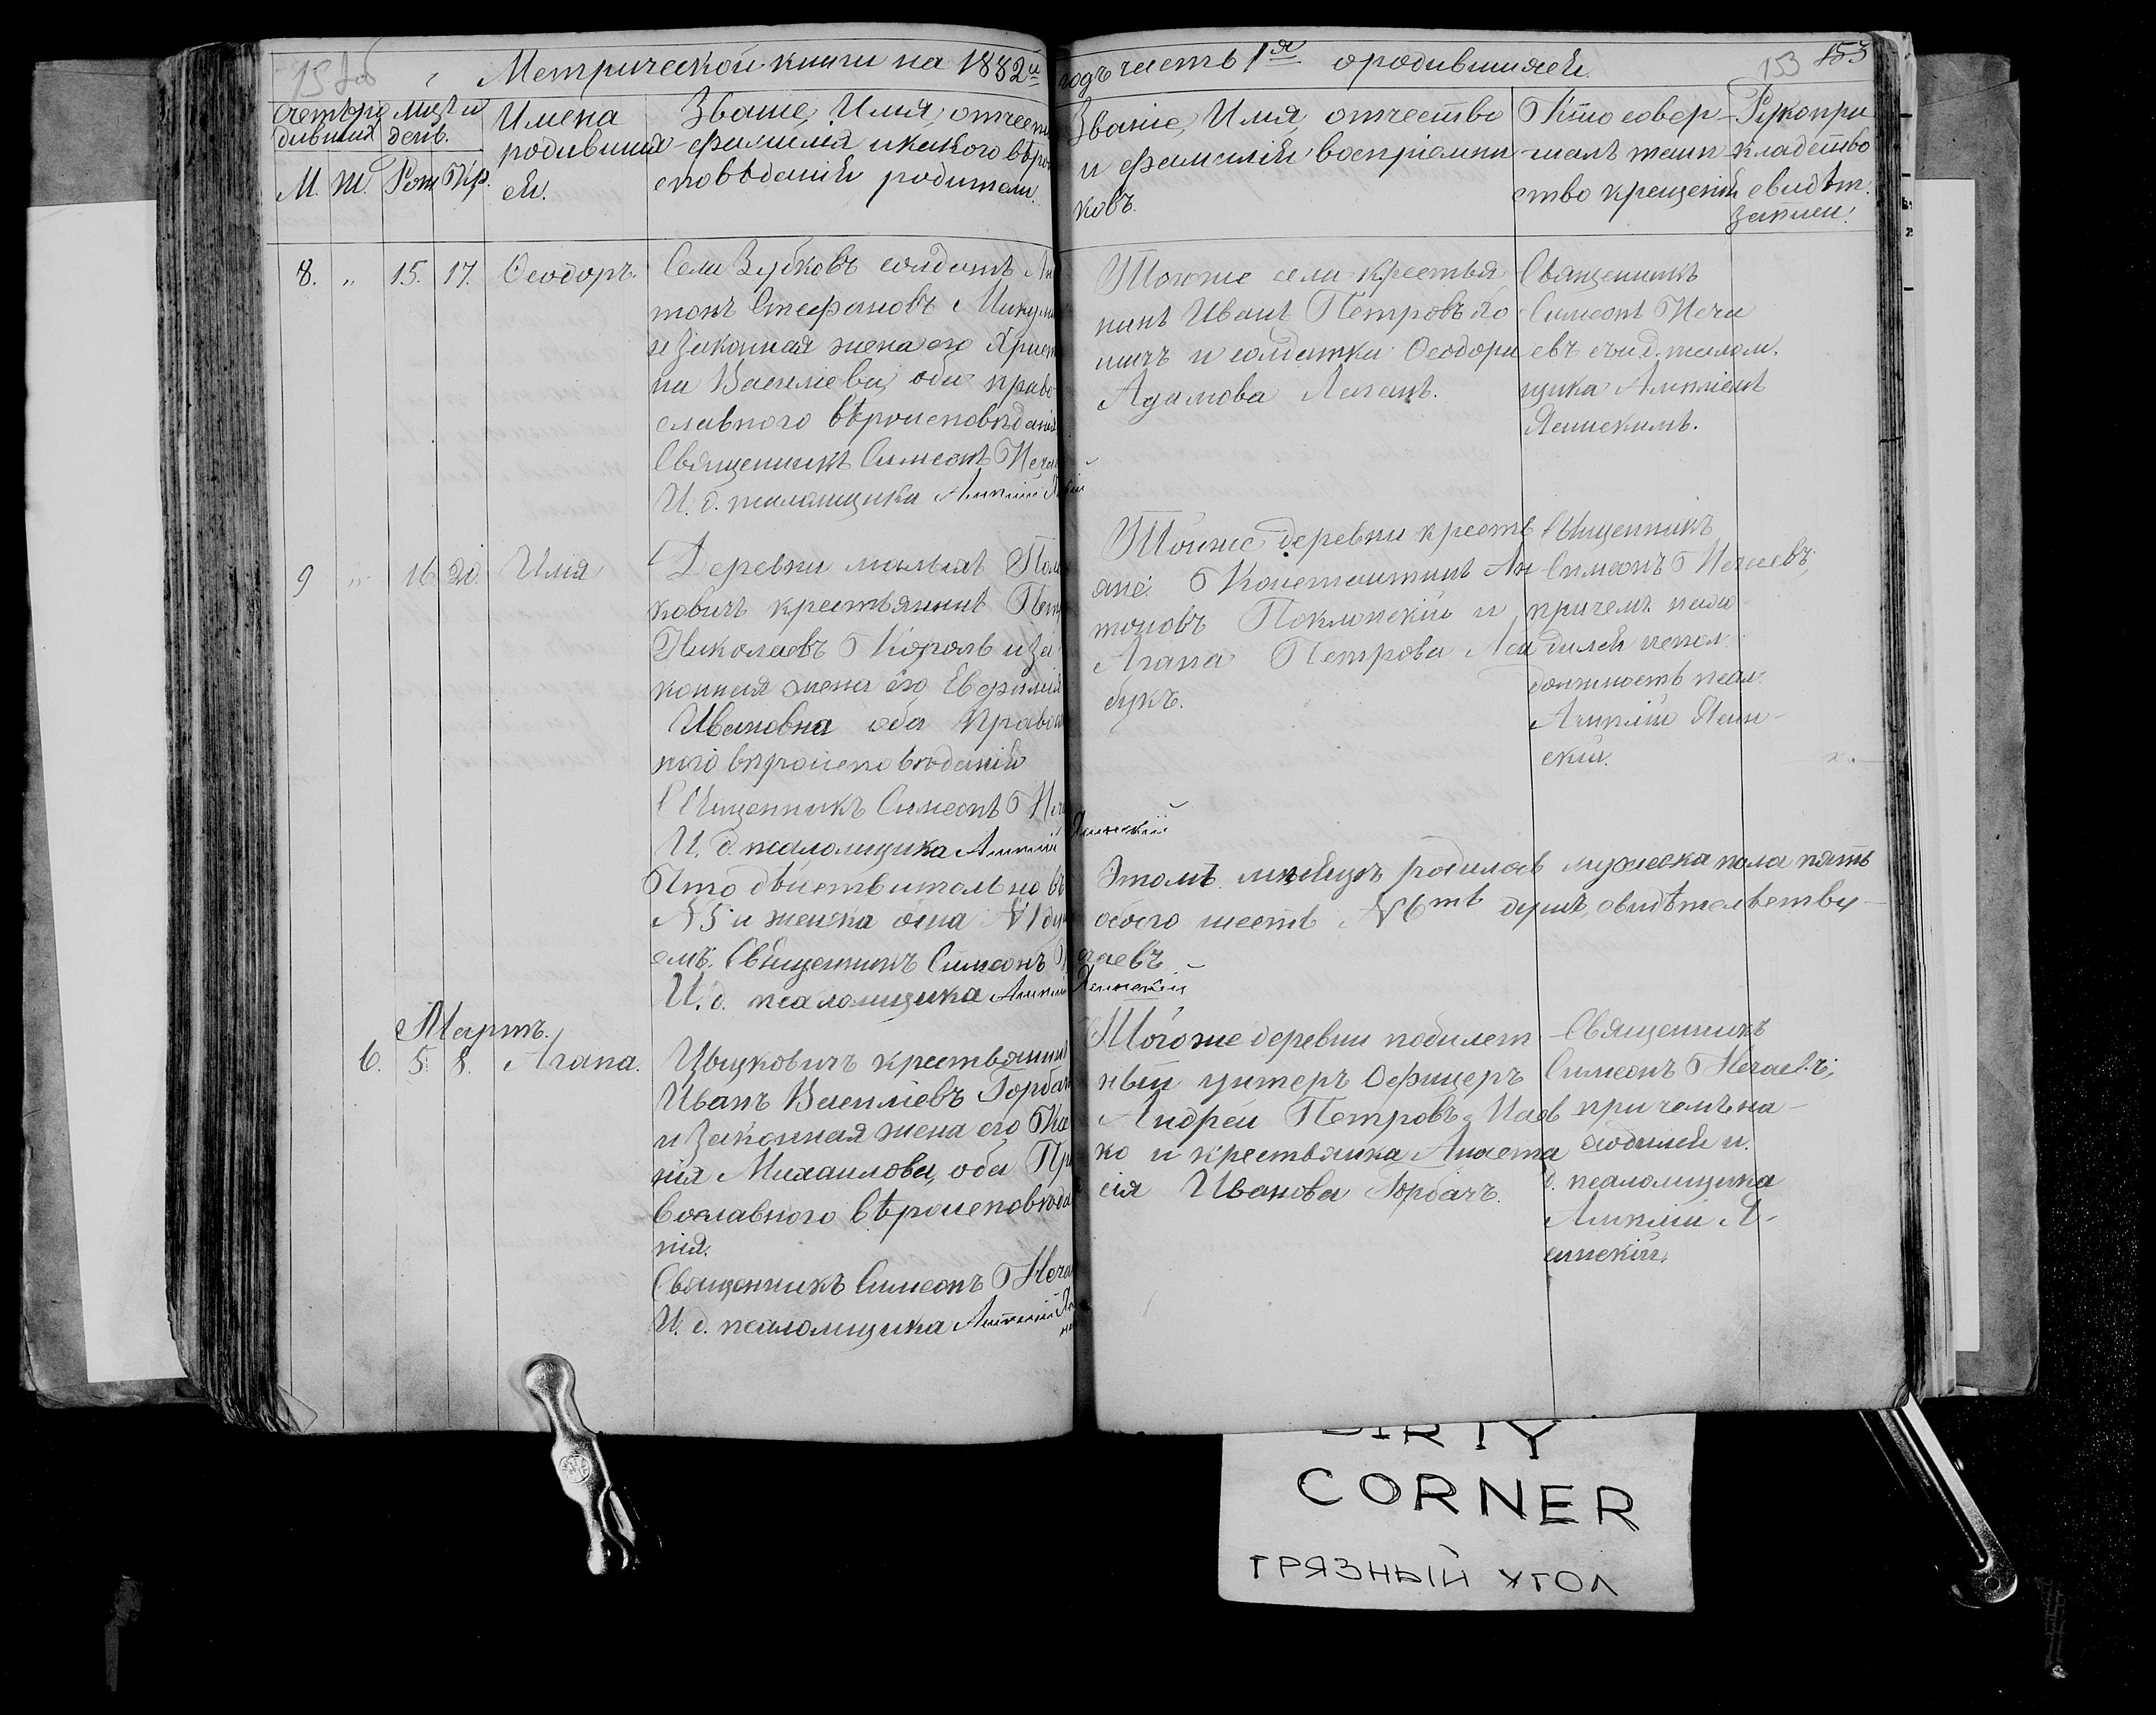 Метрической книги на 1882й
годъ часть 1я о родившихся.
153 153
Счетъ ро
дивших
Мцъ и
день.
М. Ж. Рож. Кр.
Имена
родивших
ся.
Званіе, Имя, отчест
фамилія и какого вѣро
сповѣданія родители.
Званіе, Имя, отчество
и фамилія воспріемни
ковъ.
Кто совер-
шалъ таин
ство крещенія
Рукопри
кладство
свидѣт.
записи.
8. " 15. 17. Ѳеодоръ.
Села Зубковъ солдатъ Ан
тонъ Стефановъ
и законная жена его Христи
на Василіева, оба право
славного вѣроисповѣданія
Священникъ Симеонъ Неча
И. д. псаломщика
Тогоже села крестья
нинъ Иванъ Петровъ
и солдатка Ѳеодора
Адамова
Священникъ
Симеонъ Неча
евъ съ и. д. псалом.
щика
9 " 16. 20. Илія
Деревни
ковичъ крестьянинъ Петр
Николаевъ Король и за
конная жена его Евфимія
Ивановна оба Правосл
ного вѣроисповѣданія
Священникъ Симеонъ Неч
И. д. псаломщика
Тойже деревни кресть
яне: Константинъ Ан
тоновъ Поклонскій и
Агапа Петрова
Священникъ
Симеонъ Нечаевъ;
причемъ нахо
дился испол.
должность псал.
скій.
Что дѣйствительно въ
этомъ мѣсяцѣ родилось мужеска пола пять
№ 5 и женска одна № 1 а
обоего шесть № 6ть душъ, свидѣтельству-
емъ: Священникъ Симеонъ Нечаевъ
И. д. псаломщика
Мартъ.
6. 5. 8. Агапа.
Цвцковичъ крестьянинъ
Иванъ Василіевъ Горбач
и законная жена его Ксе
нія Михаилова, оба Пра
вославного вѣроисповѣда
нія.
Священникъ Симеонъ Неча
И. д. псаломщика
Тогоже деревни побилет
ный унтеръ Офицеръ
Андрей Петровъ
ко и крестьянка Анаста
сія Иванова Горбачъ.
Священникъ
Симеонъ Нечаевъ;
причемъ на-
ходился и.
д. псаломщика
DIRTY
CORNER
ГРЯЗНЫЙ УГОЛ